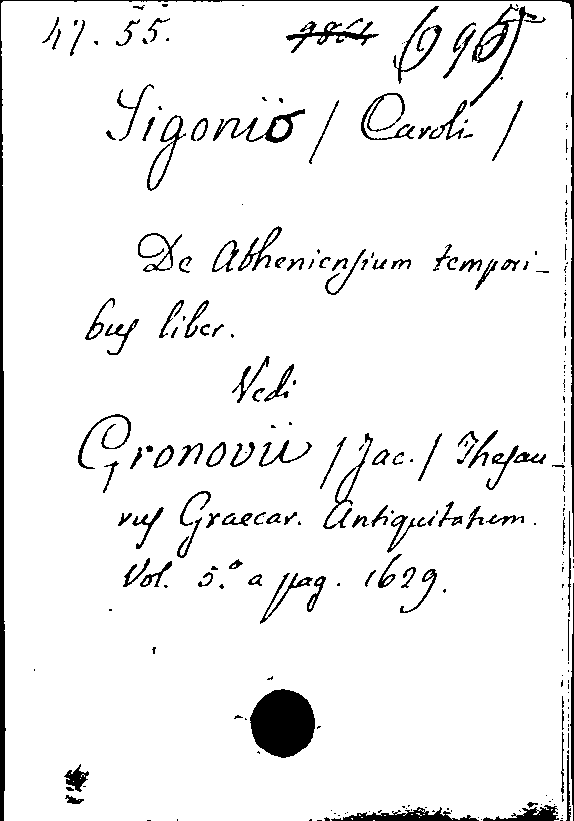 47. 55.
Sigonii / Caroli /
De Atheniensium tempori-
bus liber.
Vedi
Gronovii / Jac. / Thesau-
rus Graecar. Antiquitatum.
Vol. 5.º a pag. 1629.